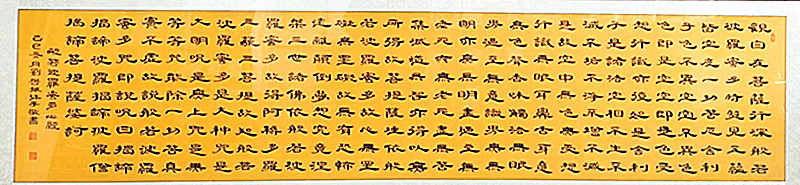 觀自在菩薩行深般若
波羅蜜多時照見五蘊
皆空度一切苦厄舍利
子色不異空空不異色
色即是空空即是色受
想行識亦復如是舍利
子是諸法空相不生不
滅不垢不淨不增不減
是故空中無色無受想
行識無眼耳鼻舌身意
無色聲香味觸法無眼
界乃至無意識界無無
明亦無無明盡乃至無
老死亦無老死盡無苦
集滅道無智亦無得以無
所得故菩提薩埵依般
若波羅蜜多故心無罣
礙無罣礙故無有恐怖
遠離顛倒夢想究竟涅
槃三世諸佛依般若波
羅蜜多故得阿耨多羅
三藐三菩提故知般若
波羅蜜多是大神咒是
大明咒是無上咒是無
等等咒能除一切苦真
實不虛故說般若波羅
蜜多咒即說咒曰揭諦
揭諦波羅揭諦波羅僧
揭諦菩提薩婆訶
般若波羅蜜多心經
冬月劉敬書